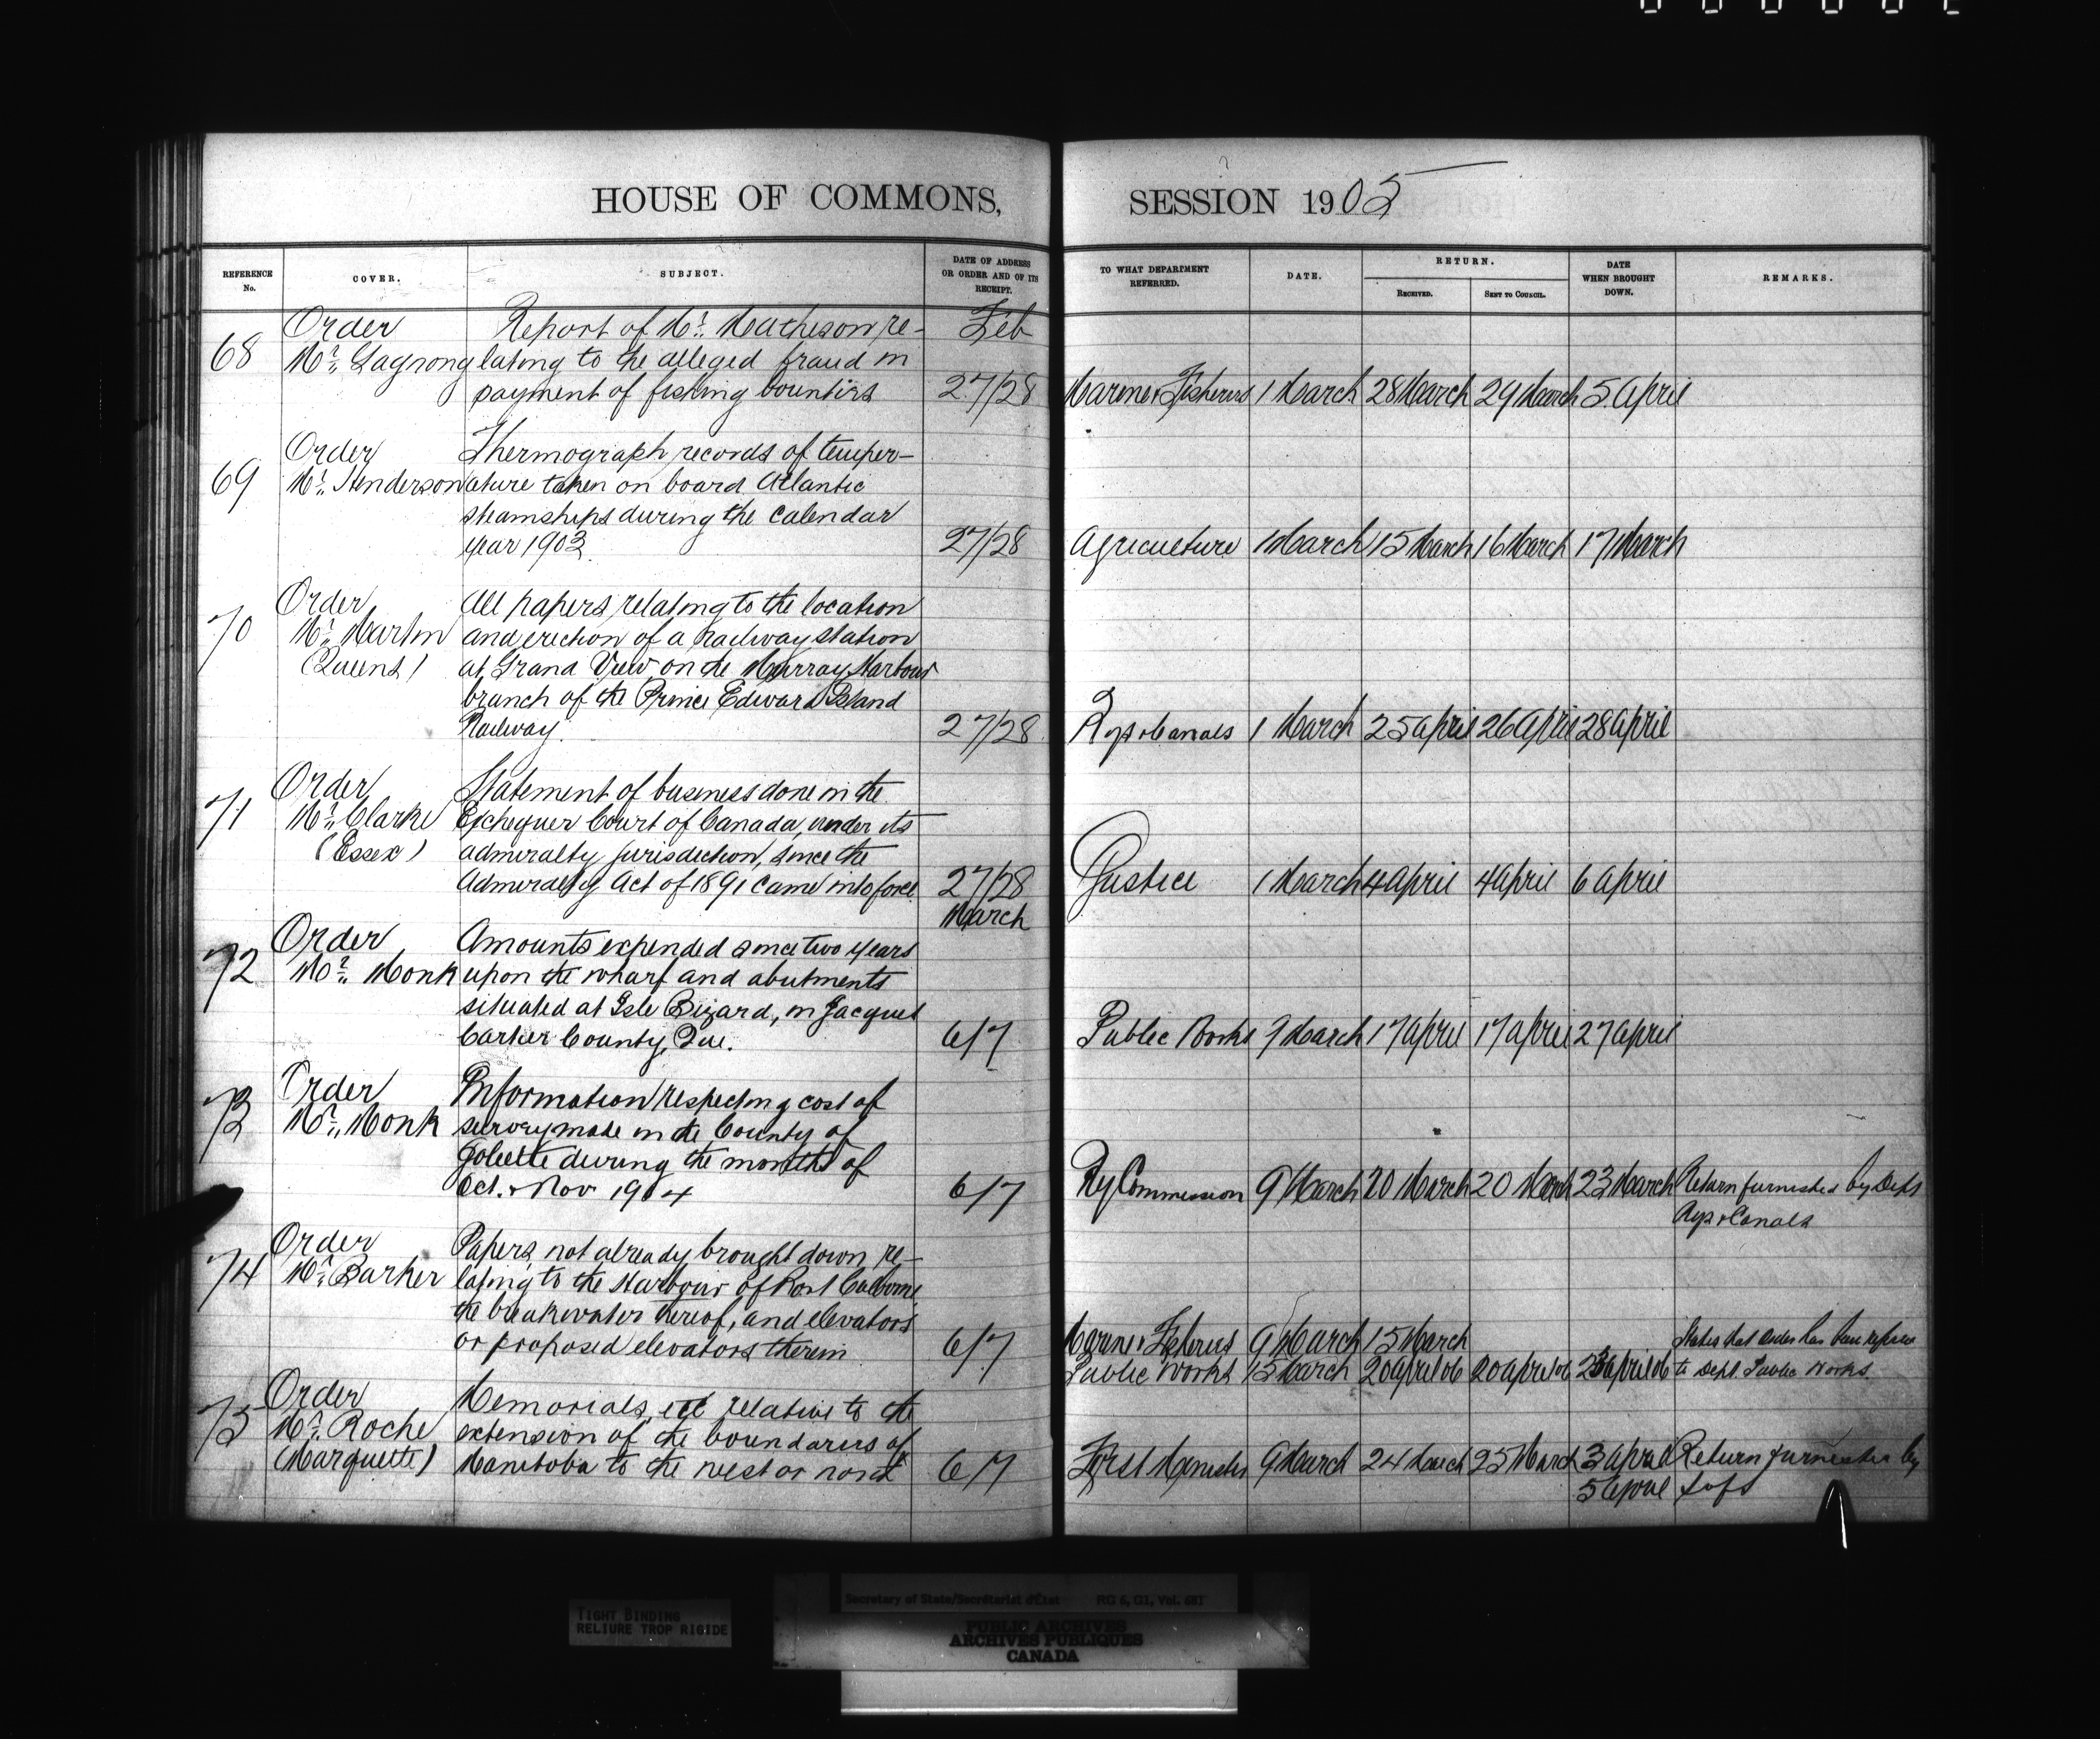 HOUSE OF COMMONS,
SESSION 1905
REFERENCE No.
COVER.
SUBJECT.
DATE OF ADDRESS OR ORDER AND OF ITS RECEIPT.
TO WHAT DEPARTMENT REFERRED.
DATE.
RETURN.
RECEIVED.
SENT TO COUNCIL.
DATE WHEN BROUGHT DOWN.
REMARKS.
Order Report of Mr. Matheson re- Feb
68 Mr. lating to the alleged fraud in
payment of fishing bounties 27/28 Marine & Fisheries 1 March 28 March 29 March 5 April
Order Thermograph records of temper-
69 Mr. Henderson ature taken on board Atlantic
steamships during the calendar
year 1903. 27/28 Agriculture 1 March 15 March 16 March 17 March
Order All papers relating to the location
70 Mr. Martin and erection of a railway station
(Queens) at Grand View on the Murray Harbour
branch of the Prince Edward Island
Railway. 27/28 Rys & Canals 1 March 25 April 26 April 28 April
Order Statement of business done in the
71 Mr. Clarke Exchequer Court of Canada, under its
(Essex) admiralty jurisdiction, since the
Admiralty Act of 1891 came into force. 27/28 Justice 1 March 4 April 4 April 6 April
March
Order Amounts expended since two years
72 Mr. Monk upon the wharf and abutments
situated at Isle Bizard, in Jacques
Cartier County, Que. 6/7 Public Works 9 March 17 April 17 April 27 April
Order Information respecting cost of
73 Mr. Monk survey made in the County of
Joliette during the months of
Oct. & Nov 1904 6/7 Ry Commission 9 March 20 March 20 March 23 March Return furnished by Dept
Rys & Canals
Order Papers, not already brought down, re-
74 Mr. Barker lating to the Harbour of Port Colborne,
the breakwater thereof, and elevators
or proposed elevators therein 6/7 Marine & Fisheries 9 March 15 March States that order has been
Public Works 15 March 20 April 06 20 April 06 23 April 06 to Dept. Public Works.
Order Memorials, etc relative to the
75 Mr. Roche extension of the boundaries of
(Marquette) Manitoba to the west or north 6/7 First Minister 9 March 24 March 25 March 3 April Return furnished by
5 April
TIGHT BINDING
RELIURE TROP RIGIDE
Secretary of State/Secrétariat d'État RG 6, G1, Vol. 681
PUBLIC ARCHIVES
ARCHIVES PUBLIQUES
CANADA